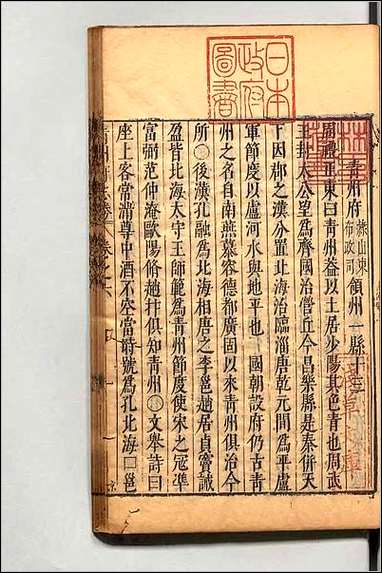 日本
政府
圖書
青州府 隸山東布政司 領州一縣十三
周禮正東曰青州蓋以土居少陽其色青也周武
王封太公望為齊國治營丘今昌樂縣是秦併天
下因郡之漢分置北海治臨淄唐乾元間為平盧
軍節度以盧河水與地平也 國朝設府仍古青
州之名自南燕慕容德都廣固以來青州俱治今
所 後漢孔融為北海相唐之李邕趙居貞竇誡
盈皆北海太守王師範為青州節度使宋之寇準
富弼范仲淹歐陽脩趙抃俱知青州 文舉詩曰
座上客常滿尊中酒不空當時號為孔北海 邕
卷之六